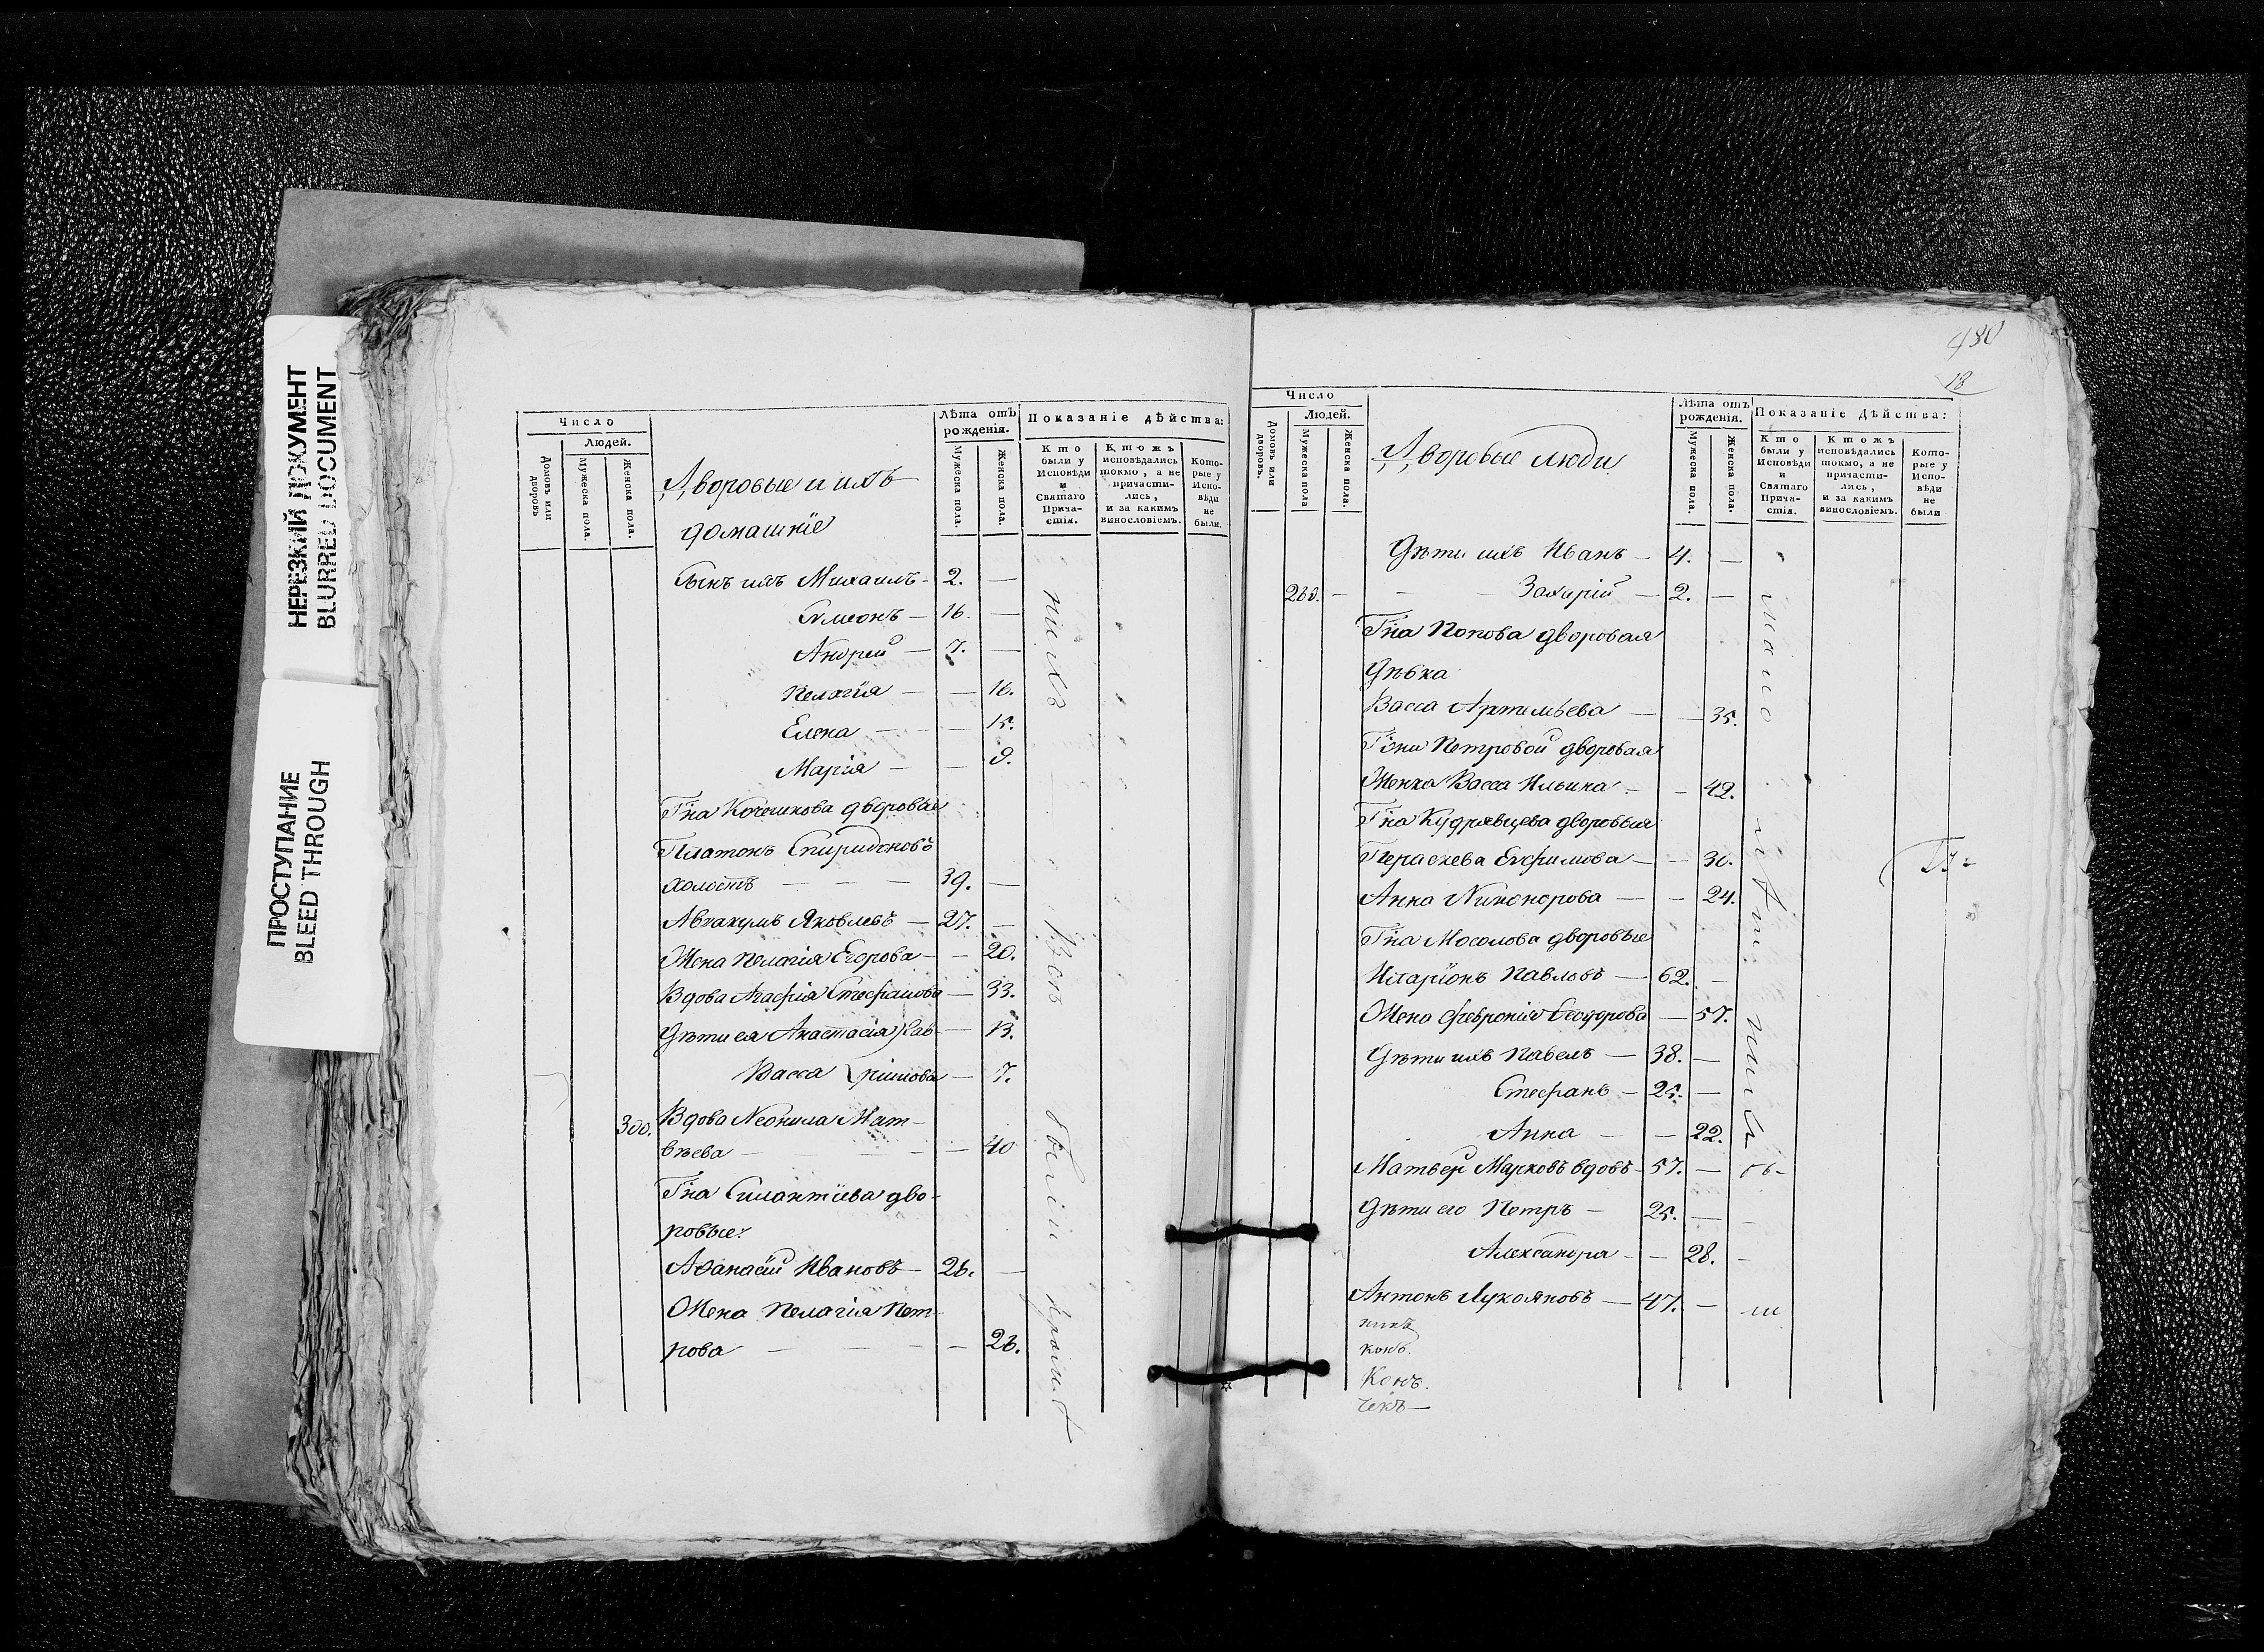 НЕРЕЗКИЙ ДОКУМЕНТ
BLURRED DOCUMENT
ПРОСТУПАНИЕ
BLEED THROUGH
Число
Людей.
Домовъ или дворовъ
Мужеска пола.
Женска пола.
Дворовые и ихъ
домашніе
Лѣта отъ рожденія.
Мужеска пола.
Женска пола.
Показаніе дѣйства:
Кто были у Исповѣди и Святаго Прича-стія.
Ктожъ исповѣдались токмо, а не причасти-лись, и за какимъ винословіемъ.
Кото-рые у Испо-вѣди не были.
Сынъ ихъ Михаилъ - 2. —
Сѵмеонъ — 16. —
Андрей — 7. —
Пелагія — — 16.
Елена — — 15.
Марія — —
Гна Кочешкова дворовые
Платонъ Спиридоновъ
холостъ — — — 39. —
Аввакумъ Яковлевъ — 27. —
Жена Пелагія Егорова — — 20.
Вдова Агафія Стефанова — 33.
Дѣти ея Анастасія — 13.
Васса — 7.
300. Вдова Неонила Мат-
вѣева — — — 40
Гна Силантіева дво-
ровые:
Аѳанасій Ивановъ — 26. —
Жена Пелагія Пет-
рова — — — 26.
480
18
Число
Людей.
Домовъ или дворовъ.
Мужеска пола
Женска пола.
Дворовые люди
Лѣта отъ рожденія.
Мужеска пола.
Женска пола.
Показаніе дѣйства:
Кто были у Исповѣди и Святаго Прича-стія.
Ктожъ исповѣдались токмо, а не причасти-лись, и за какимъ винословіемъ.
Кото-рые у Испо-вѣди не были
Дѣти ихъ Иванъ — 4. —
260. — — Захарій — 2. —
Гна Попова дворовая
Дѣвка
Васса Артемьева — — 35.
Гжи Петровой дворовая
Женка Васса Ильина — — 42.
Гна Кудрявцева дворовыя
Параскева Евфимова — — 30.
Анна Никонорова — — 24.
Гна Мосолова дворовые
Иларіонъ Павловъ — 62. —
Жена Февронія Ѳеодорова — 57.
Дѣти ихъ Павелъ — 38. —
Стефанъ — 25. —
Анна — — 22.
Матвей Марковъ вдовъ - 57. —
Дѣти его Петръ — 25. —
Александра — — 28.
Антонъ Лукояновъ — 47. —